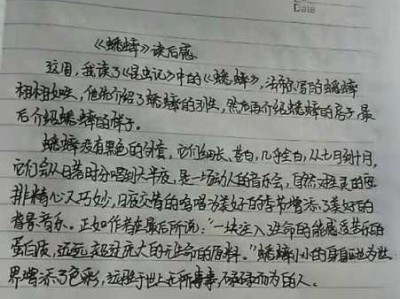 Date
《蟋蟀》读后感
这周,我读了《昆虫记》中的《蟋蟀》,法布尔写的蟋蟀
栩栩如生,他先介绍了蟋蟀的习性,然后再介绍蟋蟀的房子,最
后介绍蟋蟀的样子。
蟋蟀没有黑色的外套,它们细长、苍白,几乎全白,从七月到十月,
它们会从日落时分唱到大半夜,是一场动人的音乐会,自然女神的安
排精心又巧妙,日夜交替的鸣唱为美好的季节增添了美好的
背景音乐。正如作者在最后所说:"一块注入生命的能感
蛋白质,远远超过庞大的无生命的原料。"蟋蟀小小的身体也为世
界增添了色彩,远胜于世上无所事事,碌碌而为的人。